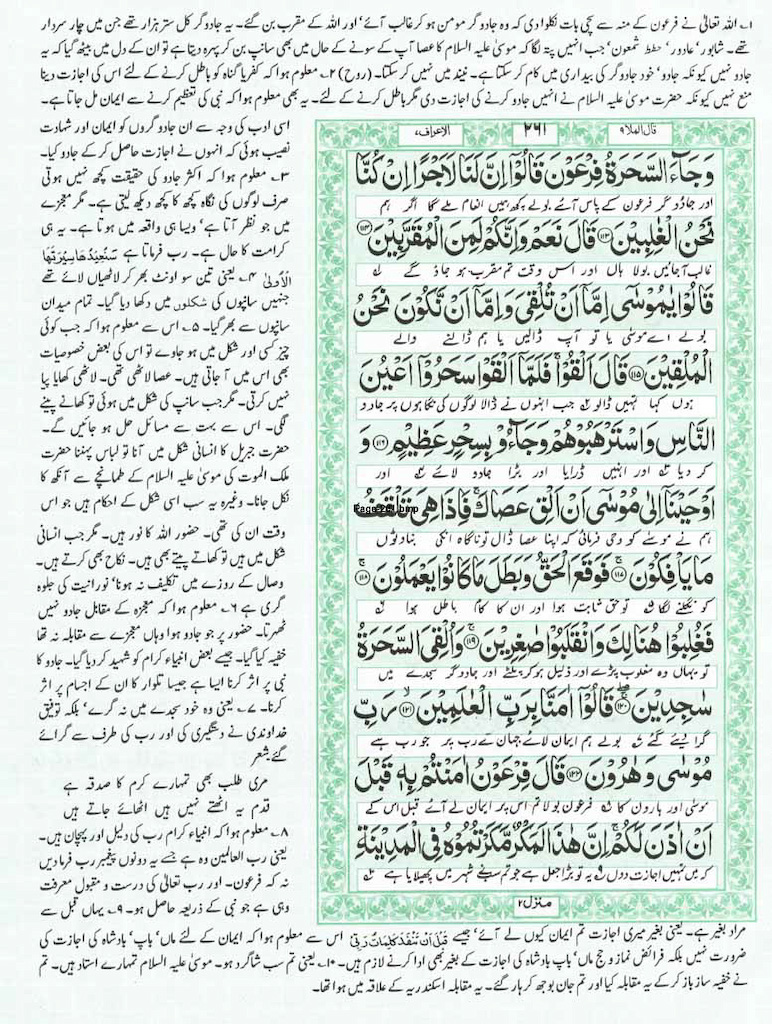 ۱۔ اللہ تعالیٰ نے فرعون کے منہ سے سچی بات نکلوا دی کہ وہ جادوگر مومن ہو کر غالب آئے' اور اللہ کے مقرب بن گئے۔ یہ جادوگر کل ستر ہزار تھے جن میں چار سردار
تھے۔ شابور' عادور' حطط شمعون' جب انہیں پتہ لگا کہ موسیٰ علیہ السلام کا عصا آپ کے سونے کے حال میں بھی سانپ بن کر پہرہ دیتا ہے تو ان کے دل میں بیٹھ گیا کہ یہ
جادو نہیں کیونکہ جادو' خود جادوگر کی بیداری میں کام کر سکتا ہے۔ نیند میں نہیں کر سکتا۔ (روح) ۲۔ معلوم ہوا کہ کفر یا گناہ کو باطل کرنے کے لئے اس کی اجازت دینا
منع نہیں کیونکہ حضرت موسیٰ علیہ السلام نے انہیں جادو کرنے کی اجازت دی مگر باطل کرنے کے لئے۔ یہ بھی معلوم ہوا کہ نبی کی تعظیم کرنے سے ایمان مل جاتا ہے۔
اسی ادب کی وجہ سے ان جادوگروں کو ایمان اور شہادت
نصیب ہوئی کہ انہوں نے اجازت حاصل کر کے جادو کیا۔
۳۔ معلوم ہوا کہ اکثر جادو کی حقیقت کچھ نہیں ہوتی
صرف لوگوں کی نگاہ کچھ کا کچھ دیکھ لیتی ہے۔ مگر معجزے
میں جو نظر آتا ہے' ویسا ہی واقعہ میں ہوتا ہے۔ یہ ہی
کرامت کا حال ہے۔ رب فرماتا ہے سَنُعِيْدُهَا سِيْرَتَهَا
الْاُوْلٰى ۴۔ یعنی تین سو اونٹ بھر کر لاٹھیاں لائے تھے
جنہیں سانپوں کی شکلوں میں دکھا دیا گیا۔ تمام میدان
سانپوں سے بھر گیا۔ ۵۔ اس سے معلوم ہوا کہ جب کوئی
چیز کسی اور شکل میں ہو جاوے تو اس کی بعض خصوصیات
بھی اس میں آ جاتی ہیں۔ عصا لاٹھی تھی۔ لاٹھی کھایا پیا
نہیں کرتی۔ مگر جب سانپ کی شکل میں ہوئی تو کھانے پینے
لگی۔ اس سے بہت سے مسائل حل ہو جائیں گے۔
حضرت جبریل کا انسانی شکل میں آنا تو لباس پہننا حضرت
ملک الموت کی موسیٰ علیہ السلام کے طمانچے سے آنکھ کا
نکل جانا۔ وغیرہ یہ سب اسی شکل کے احکام ہیں جو اس
وقت ان کی تھی۔ حضور اللہ کا نور ہیں۔ مگر جب انسانی
شکل میں ہیں تو کھاتے پیتے بھی ہیں۔ نکاح بھی کرتے ہیں۔
وصال کے روزے میں تکلیف نہ ہونا' نورانیت کی جلوہ
گری ہے ۶۔ معلوم ہوا کہ معجزہ کے مقابل جادو نہیں
ٹھہرتا۔ حضور پر جو جادو ہوا وہاں معجزے سے مقابلہ نہ تھا
خفیہ کیا گیا۔ جیسے بعض انبیاء کرام کو شہید کر دیا گیا۔ جادو کا
نبی پر اثر کرنا ایسا ہے جیسا تلوار کا ان کے اجسام پر اثر
کرنا۔ ۷۔ یعنی وہ خود سجدے میں نہ گرے' بلکہ توفیق
خداوندی نے دستگیری کی اور رب کی طرف سے گرائے
گئے شعر
مری طلب بھی تمہارے کرم کا صدقہ ہے
قدم یہ اٹھتے نہیں ہیں اٹھائے جاتے ہیں
۸۔ معلوم ہوا کہ انبیاء کرام رب کی دلیل اور پہچان ہیں۔
یعنی رب العالمین وہ ہے جسے یہ دونوں پیغمبر رب فرما دیں
نہ کہ فرعون۔ اور رب تعالیٰ کی درست و مقبول معرفت
وہی ہے جو نبی کے ذریعہ حاصل ہو۔ ۹۔ یہاں قبل سے
قال الملا ۹
۲۶۱
الاعراف ۷
وَجَآءَ السَّحَرَةُ فِرْعَوْنَ قَالُوْٓا اِنَّ لَنَا لَاَجْرًا اِنْ كُنَّا
اور جادوگر فرعون کے پاس آئے بولے کچھ ہمیں انعام ملے گا اگر ہم
نَحْنُ الْغٰلِبِيْنَ ۱۱۳ قَالَ نَعَمْ وَاِنَّكُمْ لَمِنَ الْمُقَرَّبِيْنَ ۱۱۴
غالب آجائیں بولا ہاں اور اس وقت تم مقرب ہو جاؤ گے
قَالُوْا يٰمُوْسٰٓى اِمَّآ اَنْ تُلْقِيَ وَاِمَّآ اَنْ نَّكُوْنَ نَحْنُ
بولے اے موسیٰ یا تو آپ ڈالیں یا ہم ڈالنے والے
الْمُلْقِيْنَ ۱۱۵ قَالَ اَلْقُوْا فَلَمَّآ اَلْقَوْا سَحَرُوْٓا اَعْيُنَ
ہوں کہا تمہیں ڈالو جب انہوں نے ڈالا لوگوں کی نگاہوں پر جادو
النَّاسِ وَاسْتَرْهَبُوْهُمْ وَجَآءُوْ بِسِحْرٍ عَظِيْمٍ ۱۱۶ وَ
کر دیا اور انہیں ڈرایا اور بڑا جادو لائے اور
اَوْحَيْنَآ اِلٰى مُوْسٰٓى اَنْ اَلْقِ عَصَاكَ فَاِذَا هِيَ تَلْقَفُ
Page-261.bmp
ہم نے موسیٰ کو وحی فرمائی کہ اپنا عصا ڈال تو ناگاہ انکی بناوٹوں
مَا يَاْفِكُوْنَ ۱۱۷ فَوَقَعَ الْحَقُّ وَبَطَلَ مَا كَانُوْا يَعْمَلُوْنَ ۱۱۸
کو نگلنے لگا تو حق ثابت ہوا اور ان کا کام باطل ہوا
فَغُلِبُوْا هُنَالِكَ وَانْقَلَبُوْا صٰغِرِيْنَ ۱۱۹ وَاُلْقِيَ السَّحَرَةُ
تو یہاں وہ مغلوب پڑے اور ذلیل ہو کر پلٹے اور جادوگر سجدے میں
سٰجِدِيْنَ ۱۲۰ قَالُوْٓا اٰمَنَّا بِرَبِّ الْعٰلَمِيْنَ ۱۲۱ رَبِّ
گرا دیئے گئے بولے ہم ایمان لائے جہان کے رب پر جو رب ہے
مُوْسٰى وَهٰرُوْنَ ۱۲۲ قَالَ فِرْعَوْنُ اٰمَنْتُمْ بِهٖ قَبْلَ
موسیٰ اور ہارون کا فرعون بولا تم اس پر ایمان لے آئے قبل اس کے
اَنْ اٰذَنَ لَكُمْ اِنَّ هٰذَا لَمَكْرٌ مَّكَرْتُمُوْهُ فِي الْمَدِيْنَةِ
کہ میں تمہیں اجازت دوں یہ تو بڑا جعل ہے جو تم سب نے شہر میں پھیلایا ہے
منزل ۲
مراد بغیر ہے۔ یعنی بغیر میری اجازت تم ایمان کیوں لے آئے' جیسے قَبْلَ اَنْ تَنْفَدَ كَلِمٰتُ رَبِّيْ اس سے معلوم ہوا کہ ایمان کے لئے ماں' باپ' بادشاہ کی اجازت کی
ضرورت نہیں بلکہ فرائض نماز و حج ماں' باپ بادشاہ کی اجازت کے بغیر بھی ادا کرنے لازم ہیں۔ ۱۰۔ یعنی تم سب شاگرد ہو۔ موسیٰ علیہ السلام تمہارے استاد ہیں۔ تم
نے خفیہ ساز باز کر کے یہ مقابلہ کیا اور تم جان بوجھ کر ہار گئے۔ یہ مقابلہ اسکندریہ کے علاقہ میں ہوا تھا۔